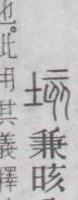 垓兼晐
也。此用其義釋